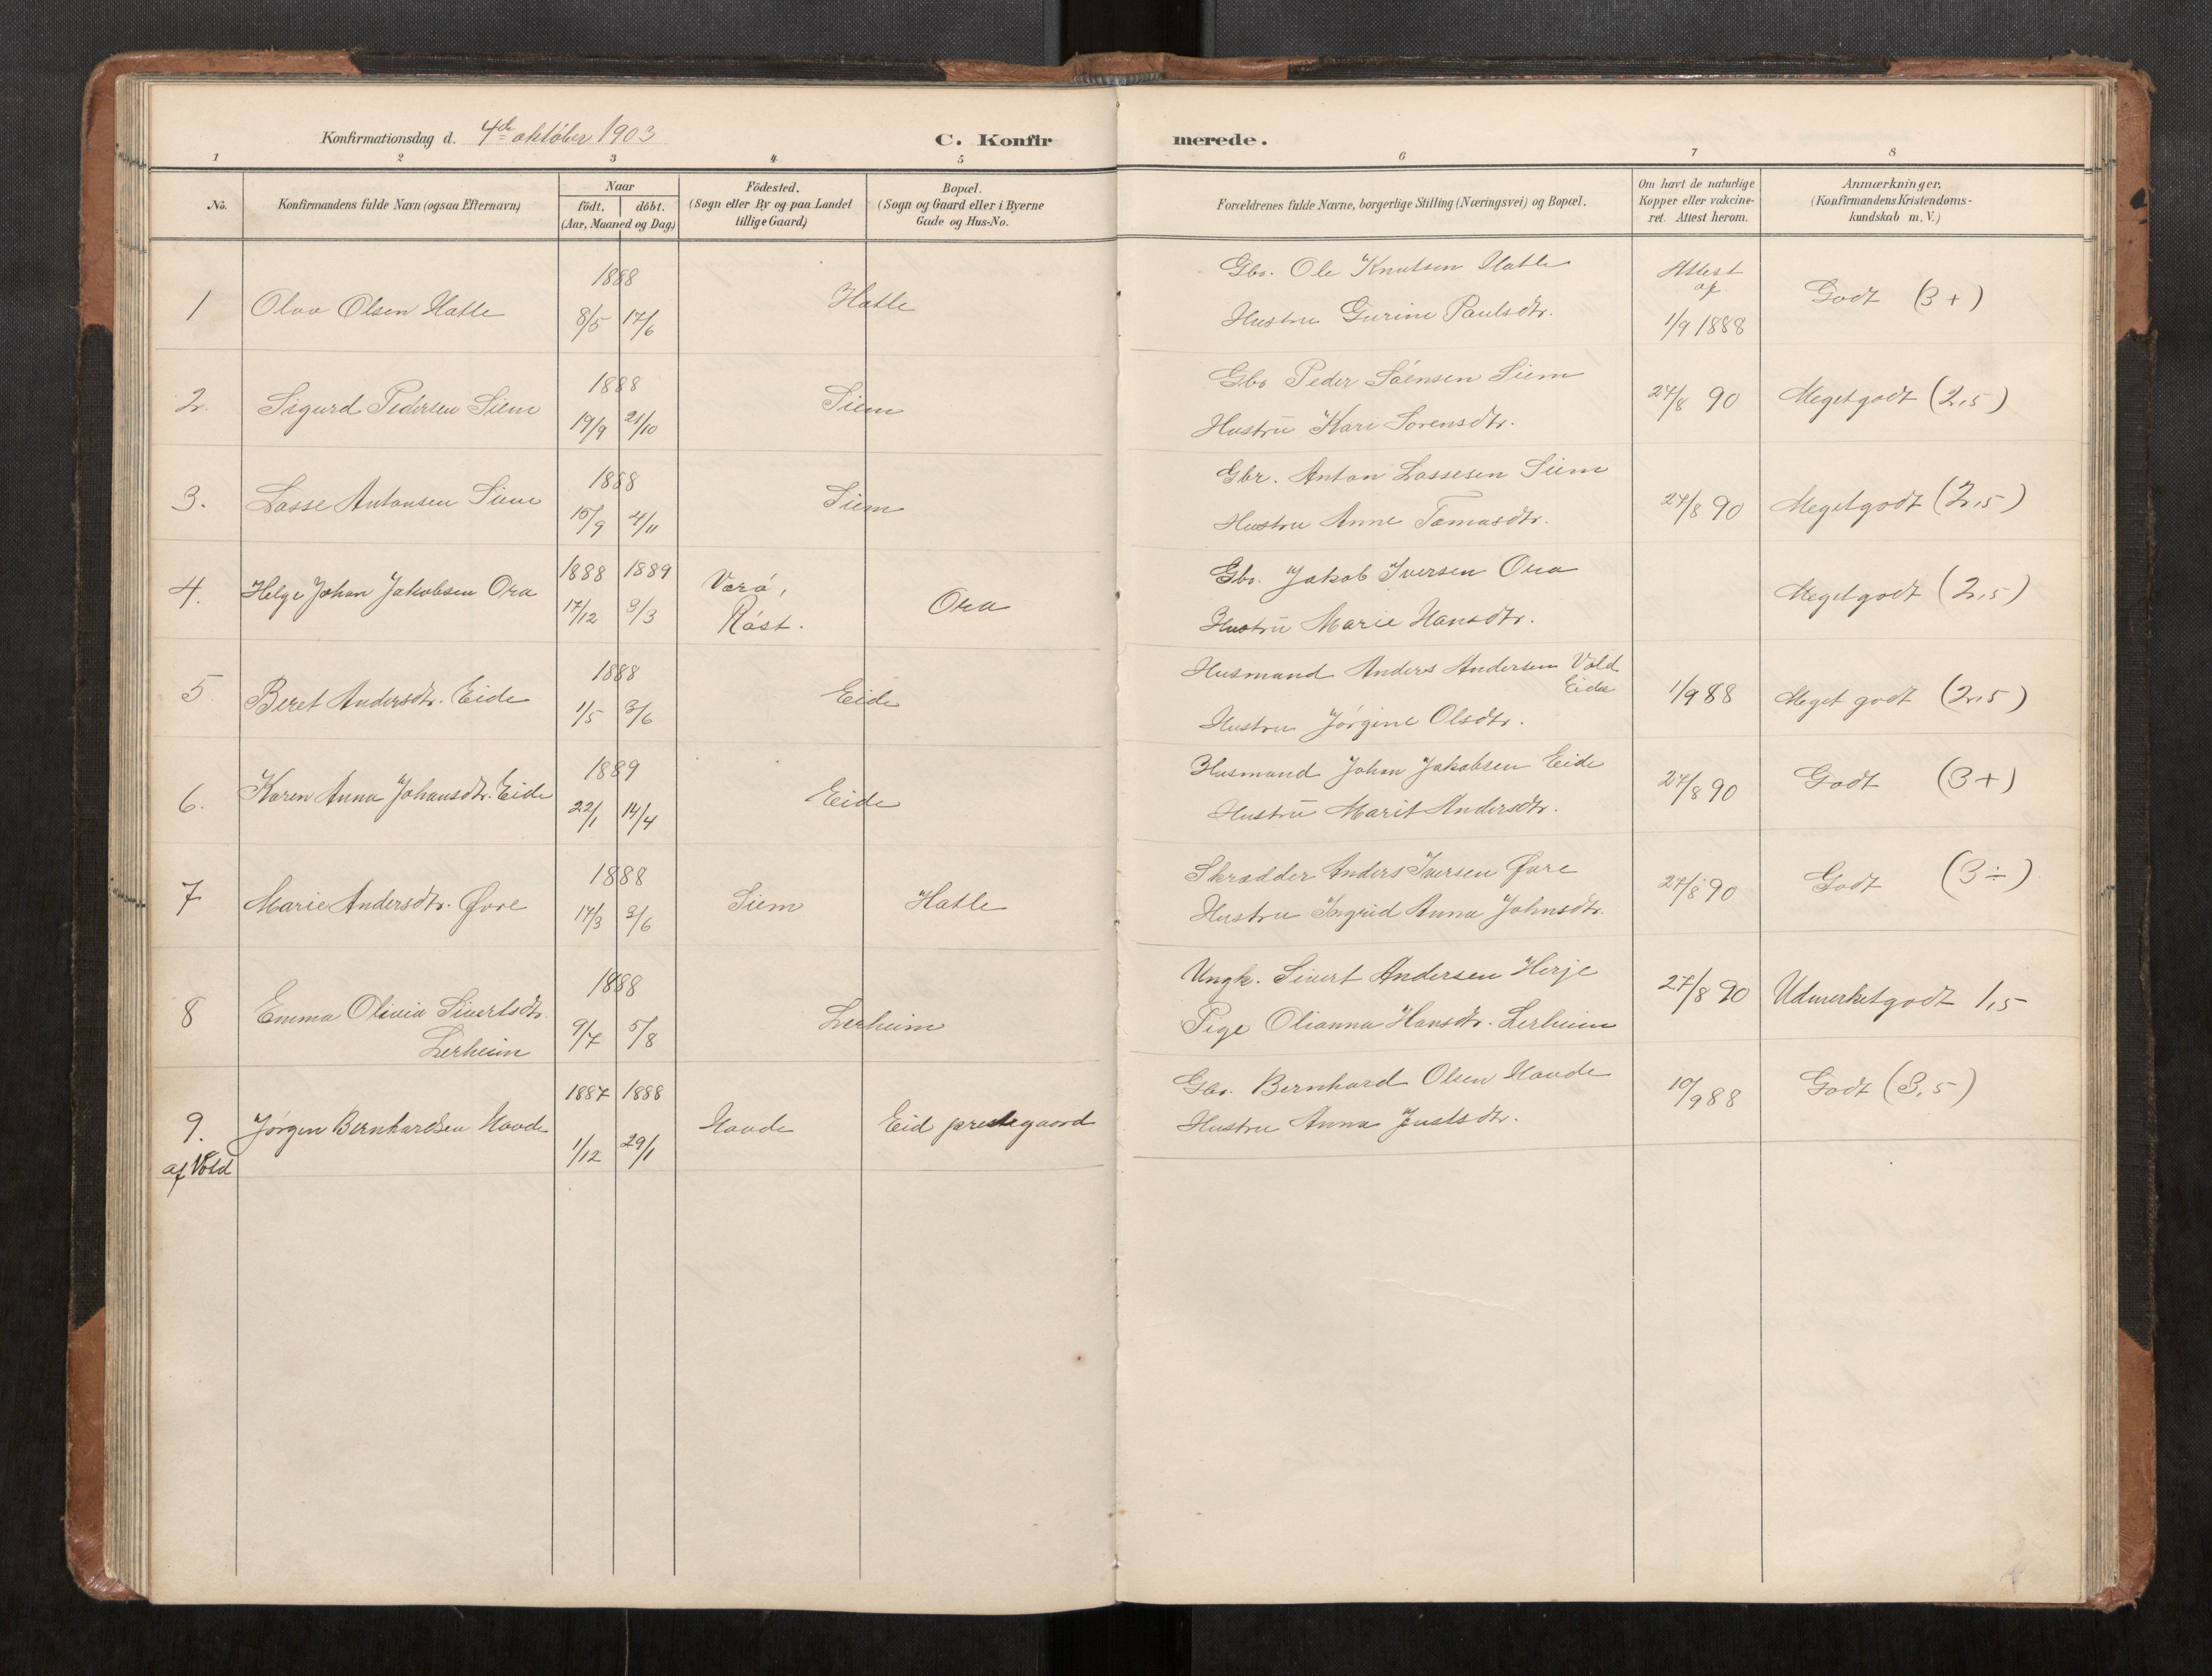 Konfirmationsdag d. 4de oktober 1903
C. Konfirmerede.
1 2 3 4 5 6 7 8
No.
Konfirmandens fulde Navn (ogsaa Efternavn)
Naar
födt. döbt.
(Aar, Maaned og Dag)
Födested.
(Sogn eller By og paa Landet
tillige Gaard)
Bopæl.
(Sogn og Gaard eller i Byerne
Gade og Hus-No.
Forældrenes fulde Navne, borgerlige Stilling (Næringsvei) og Bopæl.
Om havt de naturlige
Kopper eller vakcine-
ret. Attest herom.
Anmærkninger.
(Konfirmandens Kristendoms-
kundskab m. V.)
1 Olav Olsen Hatle
1888
8/5 17/6
Hatle
Gbr. Ole Knutsen Hatle
Hustru Gurine Paulsdtr.
Attest
af
1/9 1888
Godt (3+)
2. Sigurd Pedersen Siem
1888
19/9 21/10
Siem
Gbr Peder Söensen Siem
Hustru Kari Sorensdtr.
27/8 90
Meget godt (2,5)
3. Lasse Antonsen Siem
1888
15/9 4/11
Siem
Gbr. Anton Lassesen Siem
Hustru Anne Tomasdtr.
27/8 90
Meget godt (2,5)
4. Helge Johan Jakobsen Ora
1888 1889
17/12 3/3
Værö,
Röst.
Ora
Gbr. Jakob Iversen Ora
Hustru Marie Hansdtr.
Meget godt (2,5)
5 Beret Andersdtr. Eide
1888
1/5 3/6
Eide
Husmand Anders Andersen Vold
Eide
Hustru Jörgine Olsdtr.
1/9 88
Meget godt (2,5)
6. Karen Anna Johansdtr. Eide
1889
22/1 14/4
Eide
Husmand Johan Jakobsen Eide
Hustru Marit Andersdtr.
27/8 90
Godt (3+)
7 Marie Andersdtr. Øvre
1888
17/3 3/6
Siem
Hatle
Skrædder Anders Iversen Øvre
Hustru Ingrid Anna Johnsdtr.
27/8 90
Godt (3÷)
8 Emma Olivia Sivertsdtr.
Lerheim
1888
9/7 5/8
Lerheim
Ungk. Sivert Andersen Herje
Pige Olianna Hansdtr. Lerheim
27/8 90
Udmerket godt 1,5
9. Jørgen Bernhardsen Haade
af Vold
1887 1888
1/12 29/1
Haade
Eid prestegaard
Gbr. Bernhard Olsen Haade
Hustru Anna Justsdtr.
10/9 88
Godt (3,5)